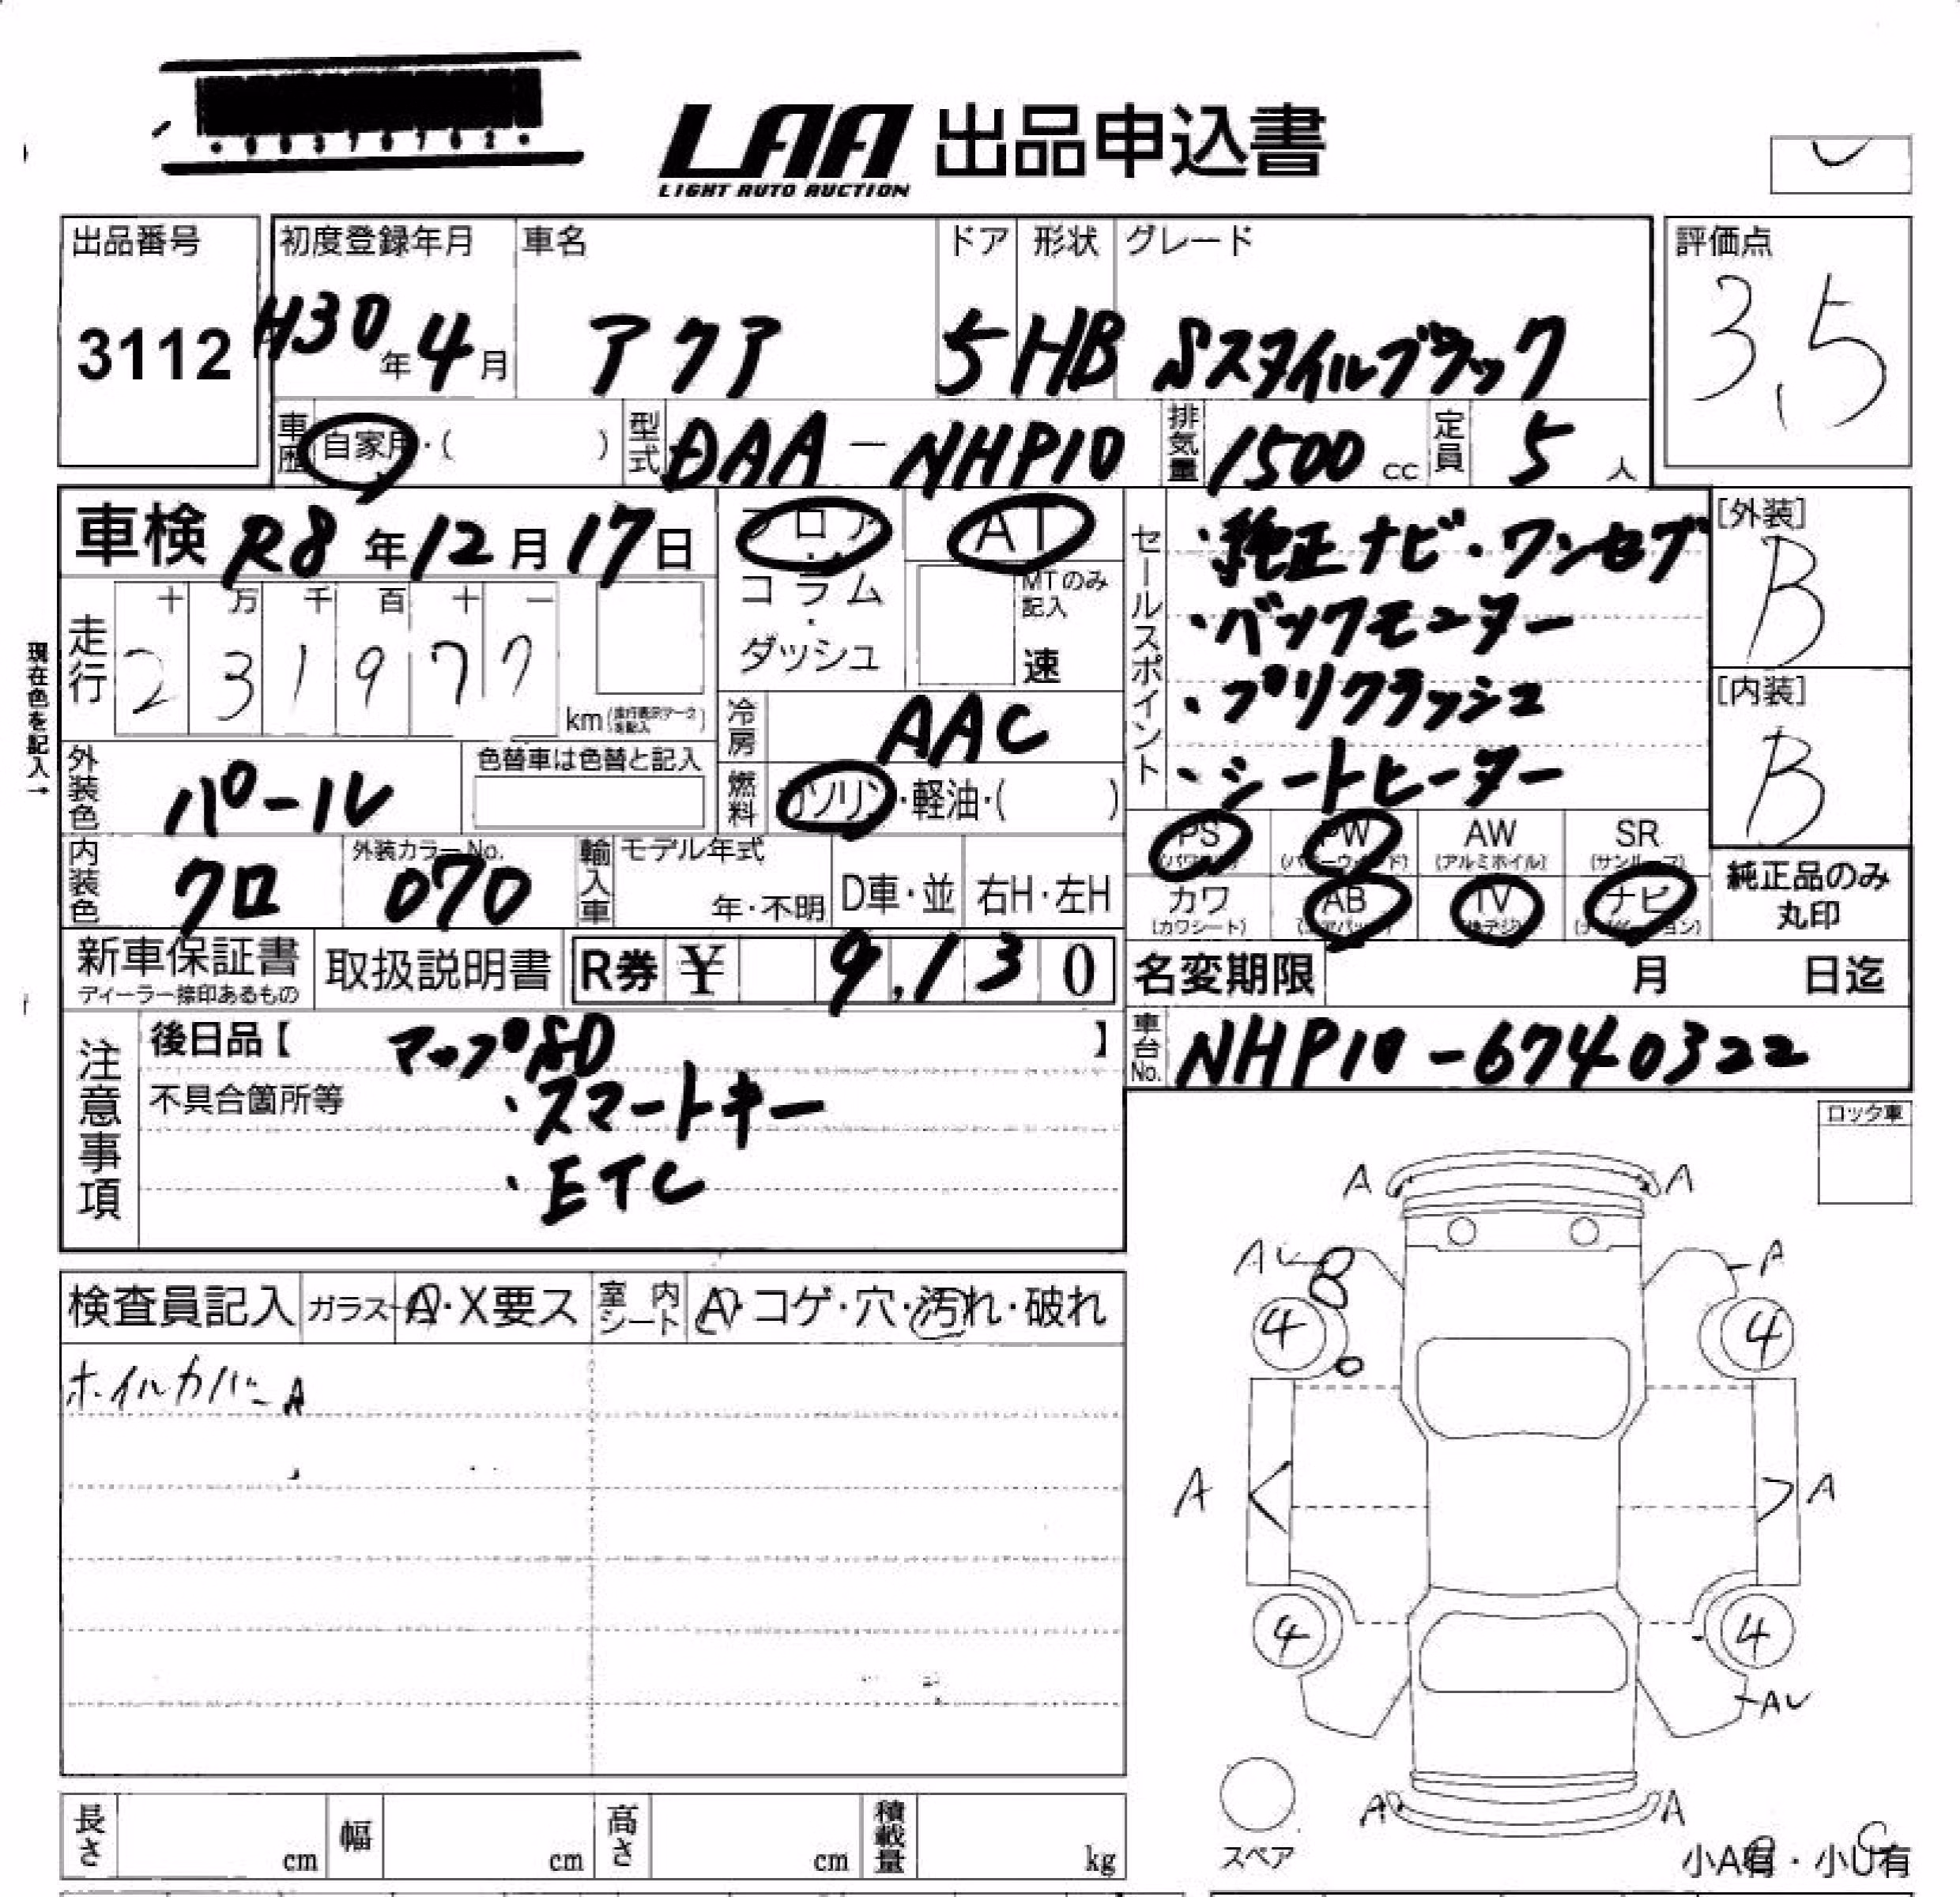 LAA 出品申込書
LIGHT AUTO AUCTION
出品番号
3112
初度登録年月
H30年4月
車名
アクア
ドア
5
形状
HB
グレード
Sスタイルブラック
評価点
3.5
車歴
自家用・( )
型式
DAA-NHP10
排気量
1500 cc
定員
5 人
車検 R8年12月17日
フロア・
コラム・
ダッシュ
AT
MTのみ記入
速
セールスポイント
・純正ナビ・ワンセグ
・バックモニター
・プリクラッシュ
・シートヒーター
[外装]
B
[内装]
B
現在色を記入→
走行
十 万 千 百 十 一
2 3 1 9 7 7
km
冷房
AAC
燃料
ガソリン・軽油・( )
外装色
パール
色替車は色替と記入
内装色
クロ
外装カラーNo.
070
輸入車
モデル年式
年・不明
D車・並
右H・左H
PS
(パワステ)
PW
(パワーウィンド)
AW
(アルミホイル)
SR
(サンルーフ)
カワ
(カワシート)
AB
(エアバッグ)
TV
(地デジ)
ナビ
(ナビゲーション)
純正品のみ
丸印
新車保証書
ディーラー捺印あるもの
取扱説明書
R券 ¥ 9,130
名変期限 月 日迄
車台No.
NHP10-6740322
注意事項
後日品【 マップSD 】
不具合箇所等 ・スマートキー
・ETC
ロック車
検査員記入
ガラス A・X要ス
室内シート
A・コゲ・穴・汚れ・破れ
ホイルカバーA
A A
AU A
B
4 4
A A
4 4
AU
A A
スペア
小A有・小U有
長さ cm
幅 cm
高さ cm
積載量 kg